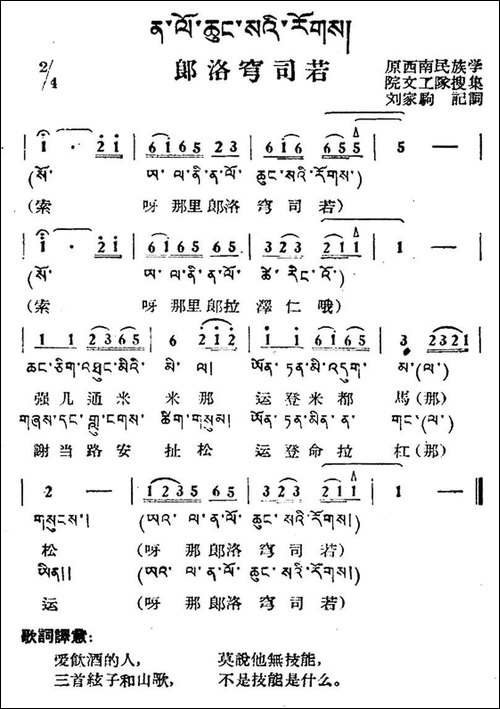 ན་ལོ་ཆུང་སའི་རོགས།
郎洛穹司若
2/4
原西南民族学
院文工隊搜集
刘家駒 記詞
| 1̇ · 2̇1̇ | 61̇65 23 | 61̇65 655 | 5 — |
(སོ་ ཨ་ལ་ནི་ན་ལོ་ ཆུང་སའི་རོགས་)
(索 呀那里郎洛 穹司若)
| 1̇ · 2̇1̇ | 61̇65 65 | 323 211 | 1 — |
(སོ་ ཨ་ལ་ནི་ན་ལོ་ ཚེ་རིང་འོ་)
(索 呀那里郎拉 澤仁哦)
| 1 1 2365 | 6 2̇1̇2̇ | 1̇ 1̇ 61̇65 | 3 2321 |
ཆང་ཅིག་འཐུང་མིའི་ མི་ལ། ཡོན་ཏན་མི་འདུག་ མ་(ལ་)
强几通米 米那 运登米都 馬(那)
གཞས་དང་གླུ་ངགས་ ཚིག་གསུམ། ཡོན་ཏན་མིན་ན་ གང་(ལ་)
謝当路安 扯松 运登命拉 杠(那)
| 2 — | 1235 65 | 323 211 | 1 — ‖
གསུངས། (ཨའ་ ལ་ན་ལོ་ ཆུང་སའི་རོགས།)
松 (呀 那郎洛穹司若)
ཡིན།། (ཨའ་ ལ་ན་ལོ་ ཆུང་སའི་རོགས།)
运 (呀 那郎洛穹司若)
歌詞譯意:
愛飲酒的人, 莫說他無技能,
三首弦子和山歌, 不是技能是什么。